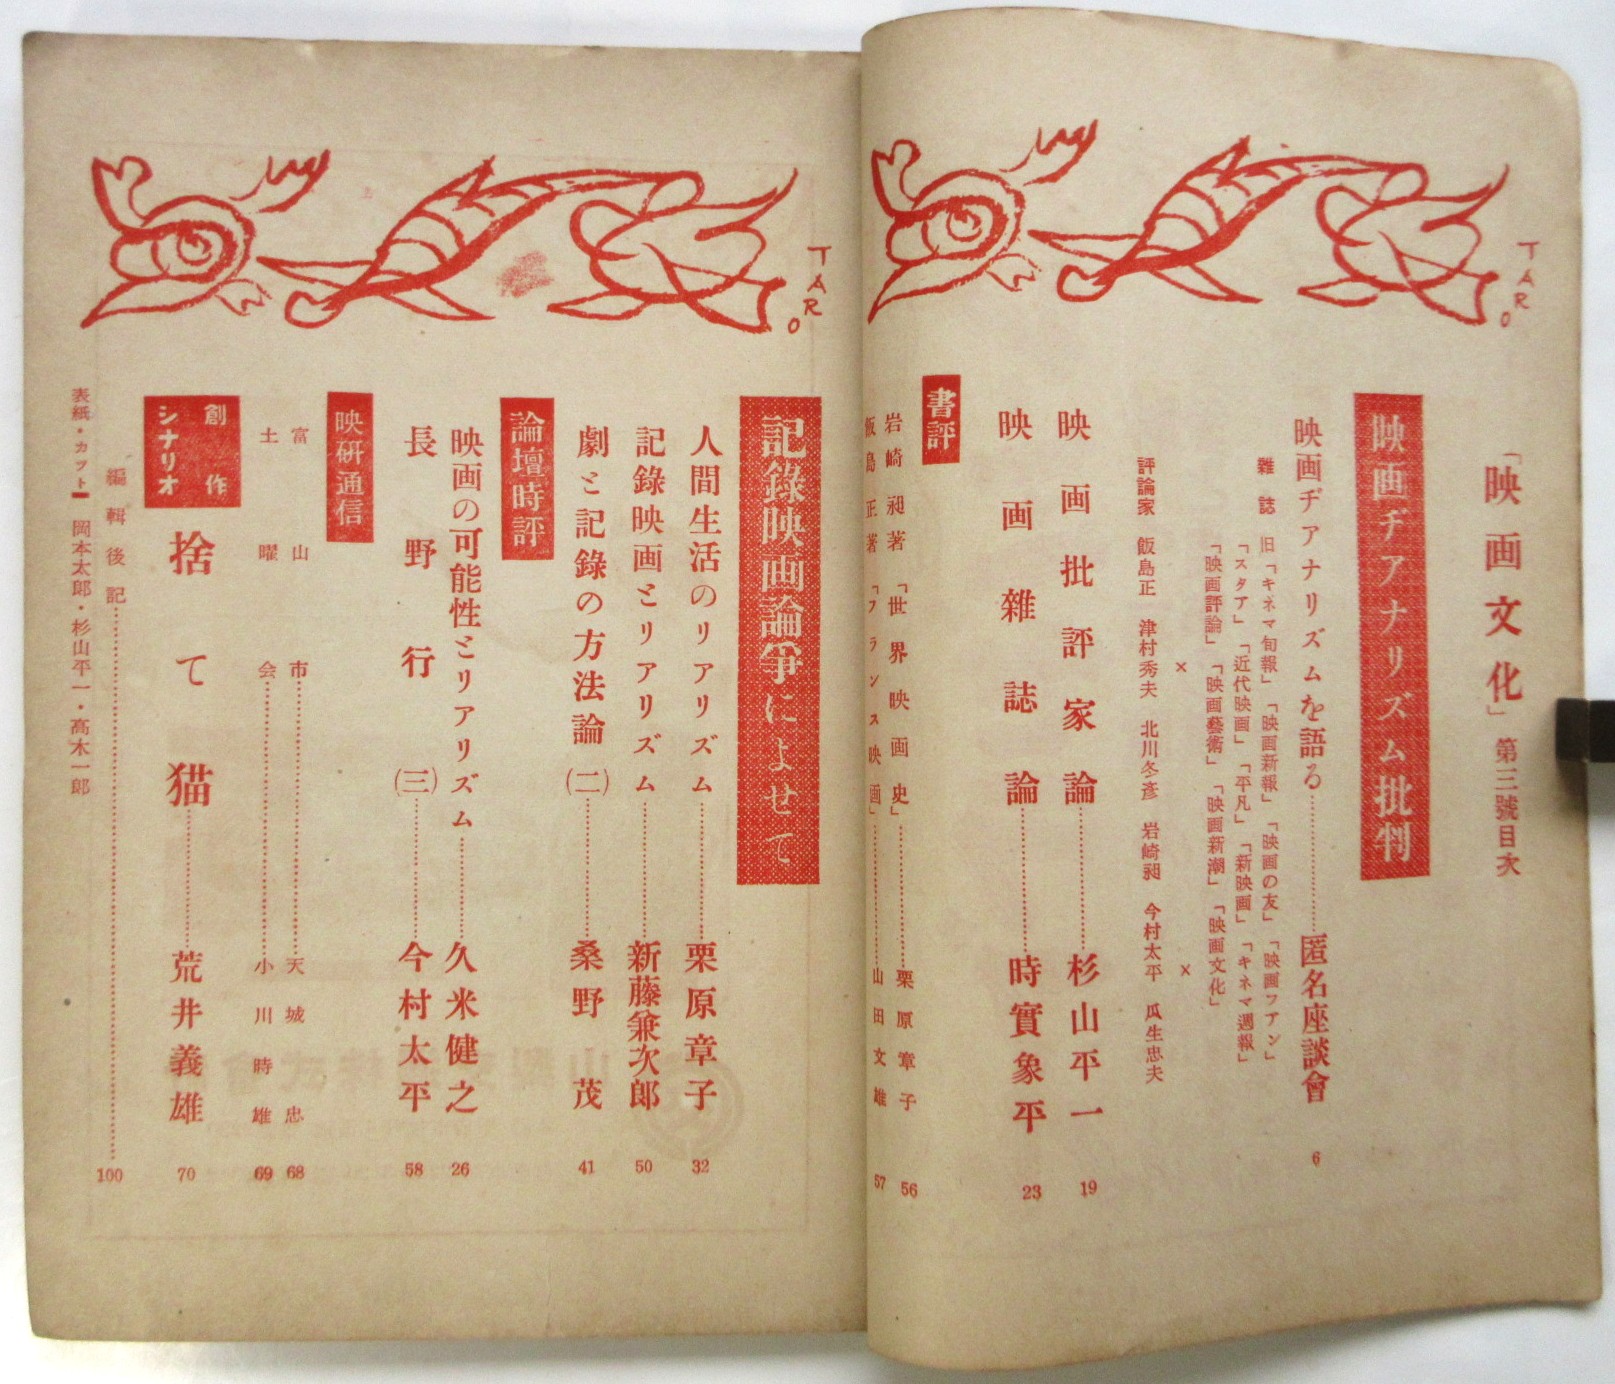 「映画文化」第三號目次
TARO
映画ヂアナリズム批判
映画ヂアナリズムを語る……………匿名座談會 6
雜誌 旧「キネマ旬報」「映画新報」「映画の友」「映画フアン」
「スタア」「近代映画」「平凡」「新映画」「キネマ週報」
「映画評論」「映画藝術」「映画新潮」「映画文化」
× ×
評論家 飯島正 津村秀夫 北川冬彦 岩崎昶 今村太平 瓜生忠夫
映画批評家論……………杉山平一 19
映画雜誌論……………時實象平 23
書評
岩崎昶著「世界映画史」……………栗原章子 56
飯島正著「フランス映画」……………山田文雄 57
TARO
記錄映画論爭によせて
人間生活のリアリズム……………栗原章子 32
記錄映画とリアリズム……………新藤兼次郎 50
劇と記錄の方法論(二)……………桑野茂 41
論壇時評
映画の可能性とリアリズム……………久米健之 26
長野行(三)……………今村太平 58
映研通信
富山市……………天城忠 68
土曜会……………小川時雄 69
創作シナリオ
捨て猫……………荒井義雄 70
編輯後記……………100
表紙・カット】 岡本太郎・杉山平一・高木一郎